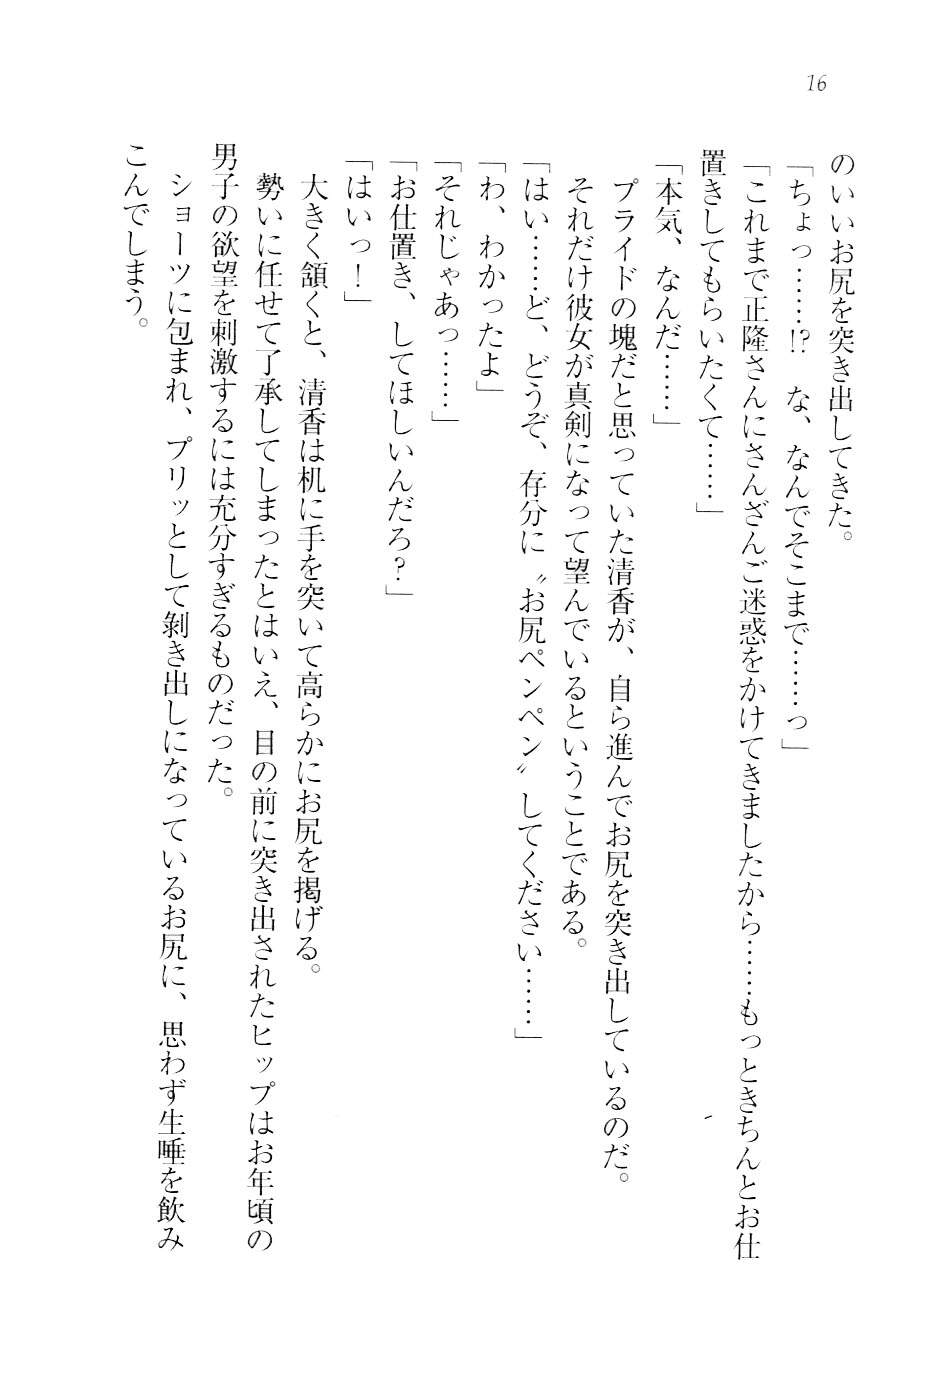 16
のいいお尻を突き出してきた。
「ちょっ……!?　な、なんでそこまで……っ」
「これまで正隆さんにさんざんご迷惑をかけてきましたから……もっときちんとお仕
置きしてもらいたくて……」
「本気、なんだ……」
　プライドの塊だと思っていた清香が、自ら進んでお尻を突き出しているのだ。
　それだけ彼女が真剣になって望んでいるということである。
「はい……ど、どうぞ、存分に〝お尻ペンペン〟してください……」
「わ、わかったよ」
「それじゃあっ……」
「お仕置き、してほしいんだろ？」
「はいっ！」
　大きく頷くと、清香は机に手を突いて高らかにお尻を掲げる。
　勢いに任せて了承してしまったとはいえ、目の前に突き出されたヒップはお年頃の
男子の欲望を刺激するには充分すぎるものだった。
　ショーツに包まれ、プリッとして剝き出しになっているお尻に、思わず生唾を飲み
こんでしまう。